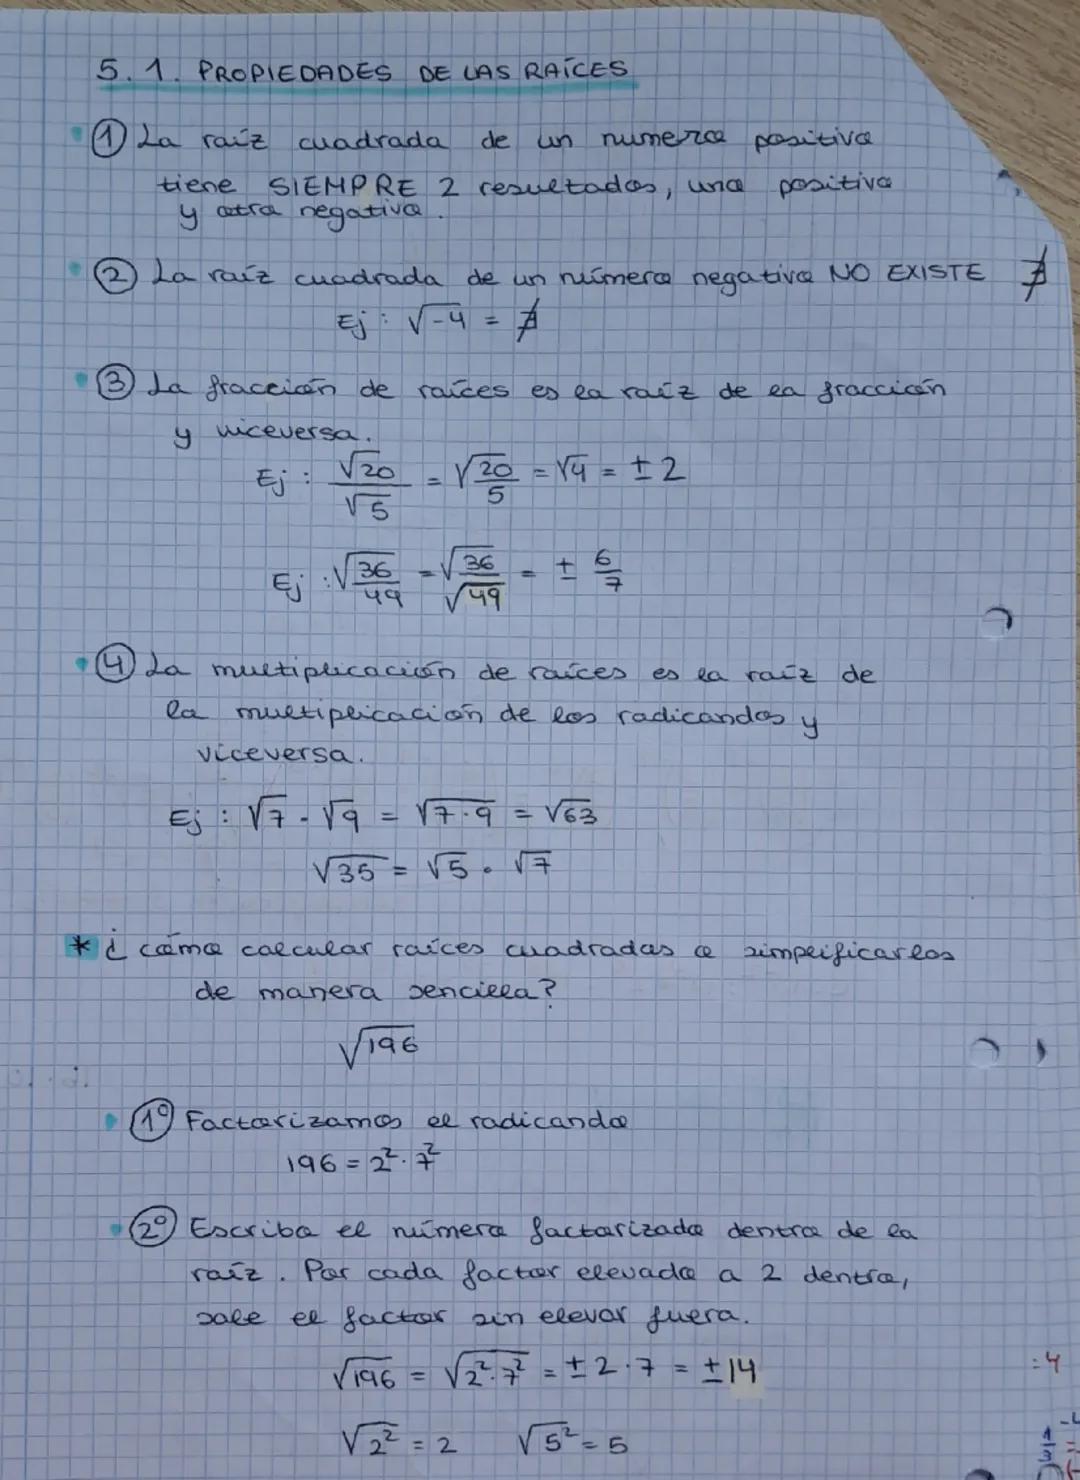 5.1. PROPIEDADES DE LAS RAÍCES
① La raíz cuadrada de un numero positivo
tiene SIEMPRE 2 resultados, uno positivo
y otro negativo.
② La raíz cuadrada de un número negativo NO EXISTE ∄
Ej: √-4 = ∄
③ La fracción de raíces es la raíz de la fracción
y viceversa.
Ej: √20/√5 = √(20/5) = √4 = ±2
Ej: √(36/49) = √36/√49 = ± 6/7
④ La multiplicación de raíces es la raíz de
la multiplicación de los radicandos y
viceversa.
Ej: √7 · √9 = √(7·9) = √63
√35 = √5 · √7
* ¿ cómo calcular raíces cuadradas o simplificarlas
de manera sencilla?
√196
1º Factorizamos el radicando
196 = 2²·7²
2º Escribo el número factorizado dentro de la
raíz. Por cada factor elevado a 2 dentro,
sale el factor sin elevar fuera.
√196 = √(2²·7²) = ±2·7 = ±14
:4
√2² = 2 √5² = 5
1/3